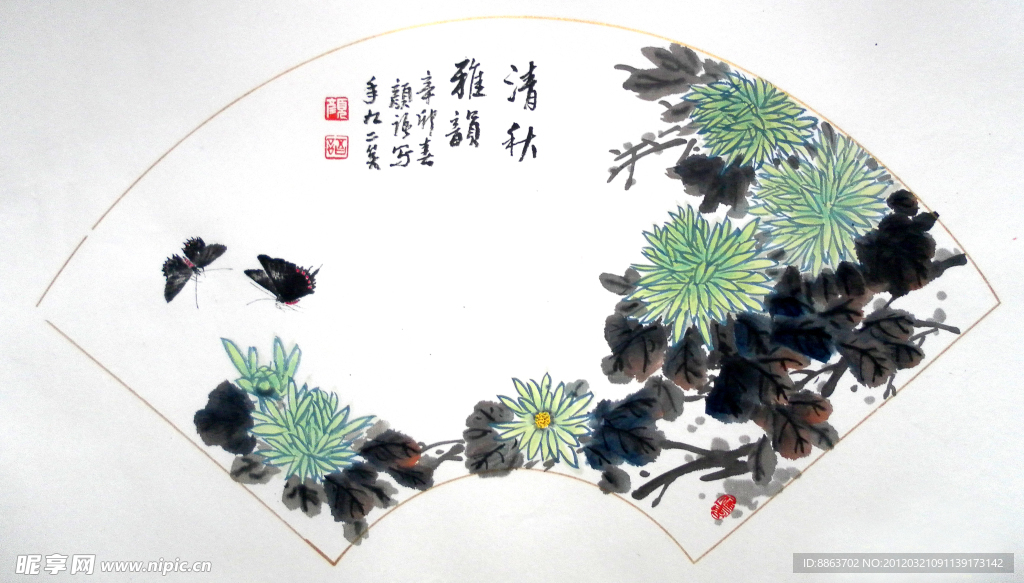 清秋
雅韻
辛卯春
九二
昵享网 www.nipic.cn
ID:8863702 NO:20120321091139173142